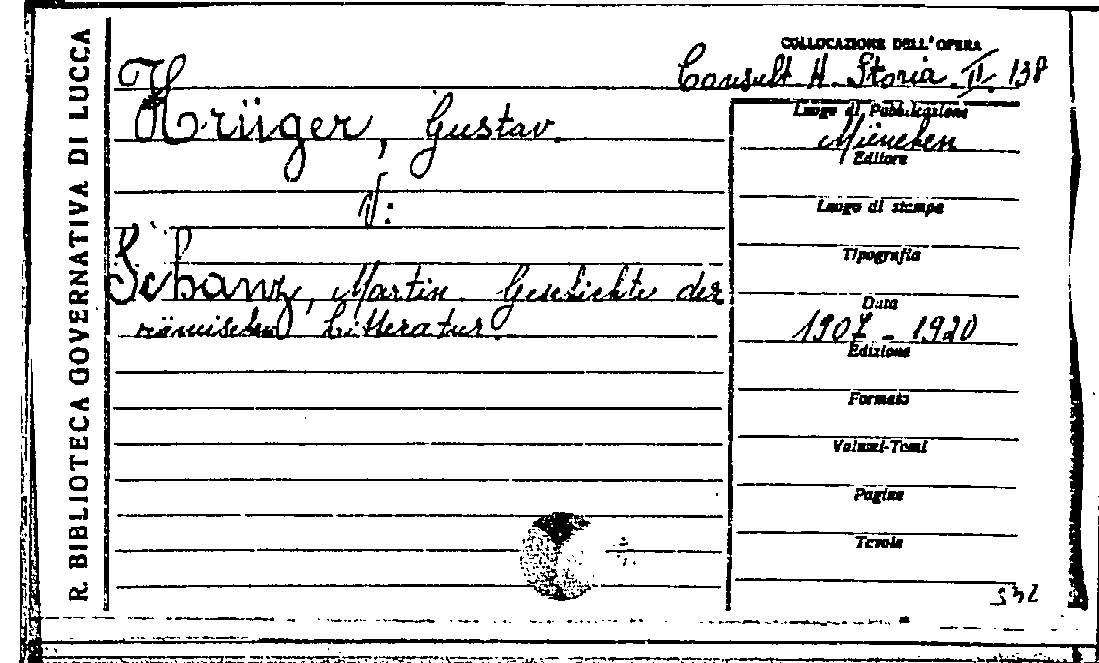 R. BIBLIOTECA GOVERNATIVA DI LUCCA
COLLOCAZIONE DELL'OPERA
Consult H. Storia. II. 138
Krüger, Gustav.
V:
Schanz, Martin. Geschichte der
römischen Litteratur.
Luogo di Pubblicazione
München
Editore
Luogo di stampa
Tipografia
Data
1907 - 1920
Edizione
Formato
Volumi-Tomi
Pagine
Tavole
532